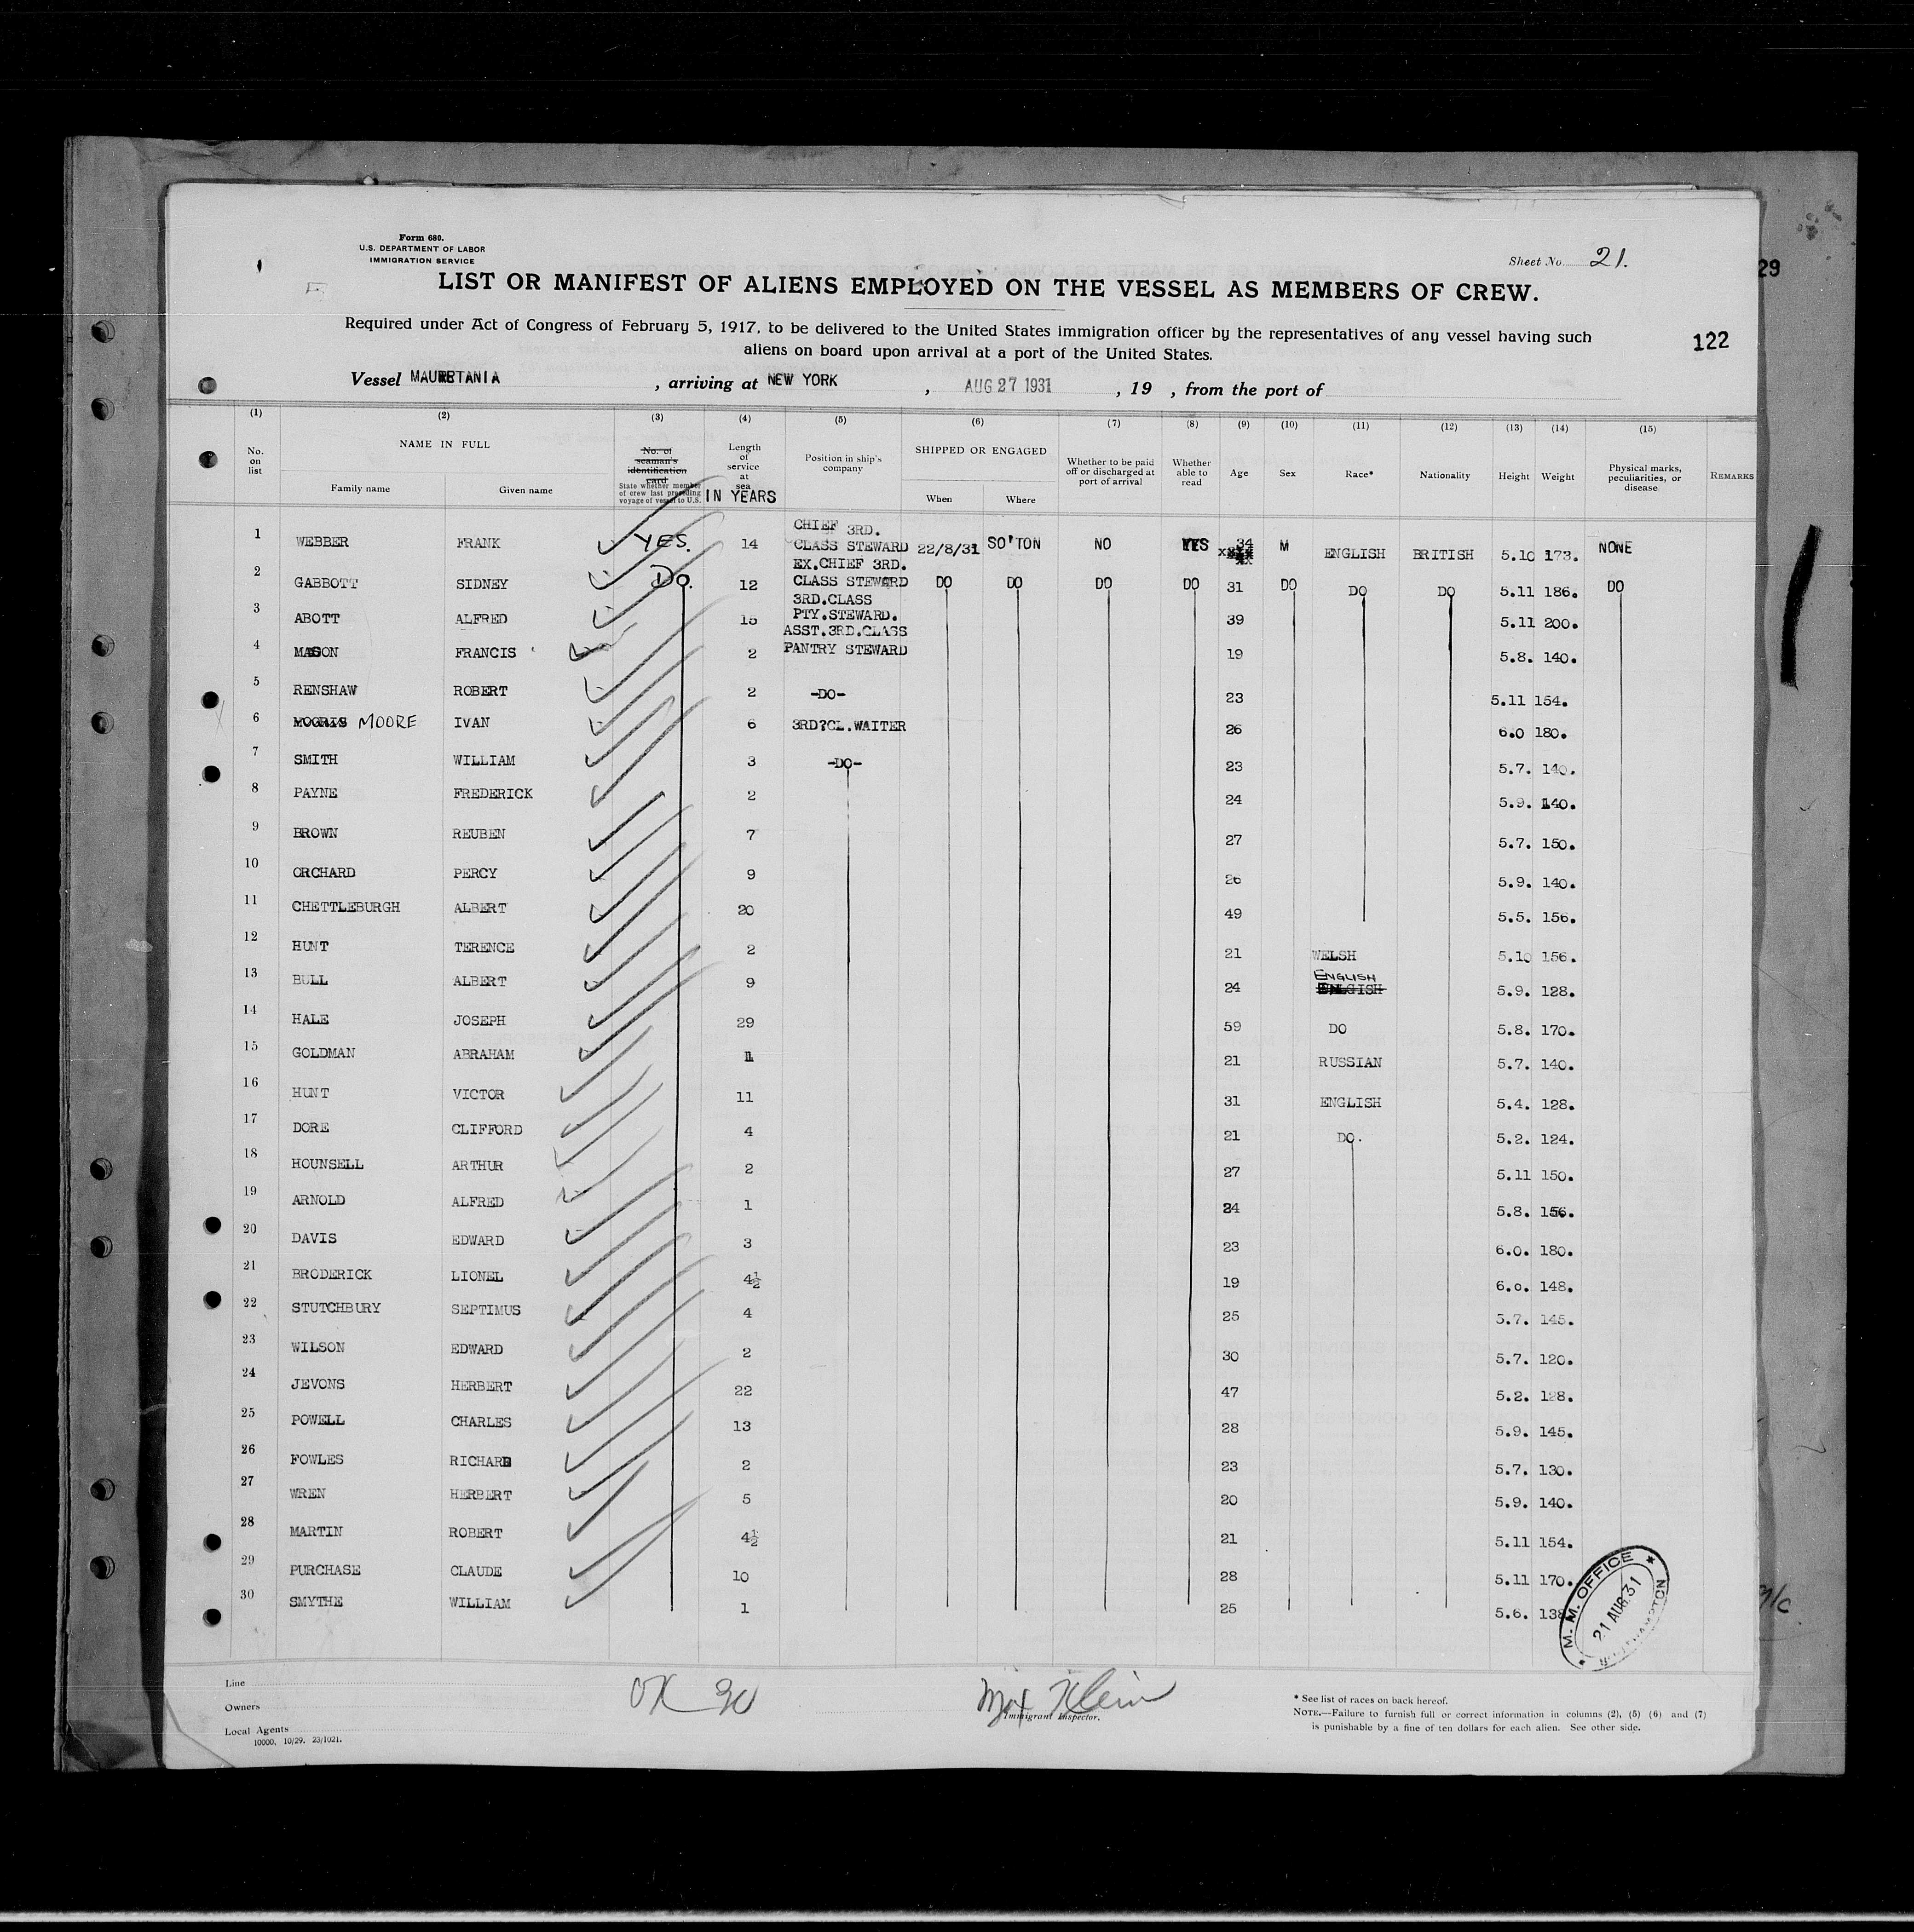 Form 680.
U.S. DEPARTMENT OF LABOR
IMMIGRATION SERVICE
Sheet No. 21.
29
LIST OR MANIFEST OF ALIENS EMPLOYED ON THE VESSEL AS MEMBERS OF CREW.
Required under Act of Congress of February 5, 1917, to be delivered to the United States immigration officer by the representatives of any vessel having such
aliens on board upon arrival at a port of the United States.
122
Vessel MAURETANIA, arriving at NEW YORK, AUG 27 1931, 19 , from the port of
(1) (2) (3) (4) (5) (6) (7) (8) (9) (10) (11) (12) (13) (14) (15)
No. on list
NAME IN FULL
Family name Given name
No. of seaman's identification card
State whether member of crew last preceding voyage of vessel to U.S.
Length of service at sea
IN YEARS
Position in ship's company
SHIPPED OR ENGAGED
When Where
Whether to be paid off or discharged at port of arrival
Whether able to read
Age Sex Race* Nationality Height Weight
Physical marks, peculiarities, or disease
REMARKS
1 WEBBER FRANK YES. 14 CHIEF 3RD. CLASS STEWARD 22/8/31 SO'TON NO YES 34 M ENGLISH BRITISH 5.10 173. NONE
2 GABBOTT SIDNEY Do. 12 EX.CHIEF 3RD. CLASS STEWARD DO DO DO DO 31 DO DO DO 5.11 186. DO
3 ABOTT ALFRED 15 3RD.CLASS PTY.STEWARD. 39 5.11 200.
4 MASON FRANCIS 2 ASST.3RD.CLASS PANTRY STEWARD 19 5.8. 140.
5 RENSHAW ROBERT 2 -DO- 23 5.11 154.
6 MOORE IVAN 6 3RD?CL.WAITER 26 6.0 180.
7 SMITH WILLIAM 3 -DO- 23 5.7. 140.
8 PAYNE FREDERICK 2 24 5.9. 140.
9 BROWN REUBEN 7 27 5.7. 150.
10 ORCHARD PERCY 9 26 5.9. 140.
11 CHETTLEBURGH ALBERT 20 49 5.5. 156.
12 HUNT TERENCE 2 21 WELSH 5.10 156.
13 BULL ALBERT 9 24 ENGLISH ENLGISH 5.9. 128.
14 HALE JOSEPH 29 59 DO 5.8. 170.
15 GOLDMAN ABRAHAM 1 21 RUSSIAN 5.7. 140.
16 HUNT VICTOR 11 31 ENGLISH 5.4. 128.
17 DORE CLIFFORD 4 21 DO. 5.2. 124.
18 HOUNSELL ARTHUR 2 27 5.11 150.
19 ARNOLD ALFRED 1 24 5.8. 156.
20 DAVIS EDWARD 3 23 6.0. 180.
21 BRODERICK LIONEL 4½ 19 6.0. 148.
22 STUTCHBURY SEPTIMUS 4 25 5.7. 145.
23 WILSON EDWARD 2 30 5.7. 120.
24 JEVONS HERBERT 22 47 5.2. 128.
25 POWELL CHARLES 13 28 5.9. 145.
26 FOWLES RICHARD 2 23 5.7. 130.
27 WREN HERBERT 5 20 5.9. 140.
28 MARTIN ROBERT 4½ 21 5.11 154.
29 PURCHASE CLAUDE 10 28 5.11 170.
30 SMYTHE WILLIAM 1 25 5.6. 138
M. M. OFFICE
21 AUG 31
SOUTHAMPTON
Line
Owners
Local Agents
10000. 10/29. 23/1021.
OK 30
Max Klein
Immigrant Inspector.
* See list of races on back hereof.
NOTE.—Failure to furnish full or correct information in columns (2), (5) (6) and (7)
is punishable by a fine of ten dollars for each alien. See other side.